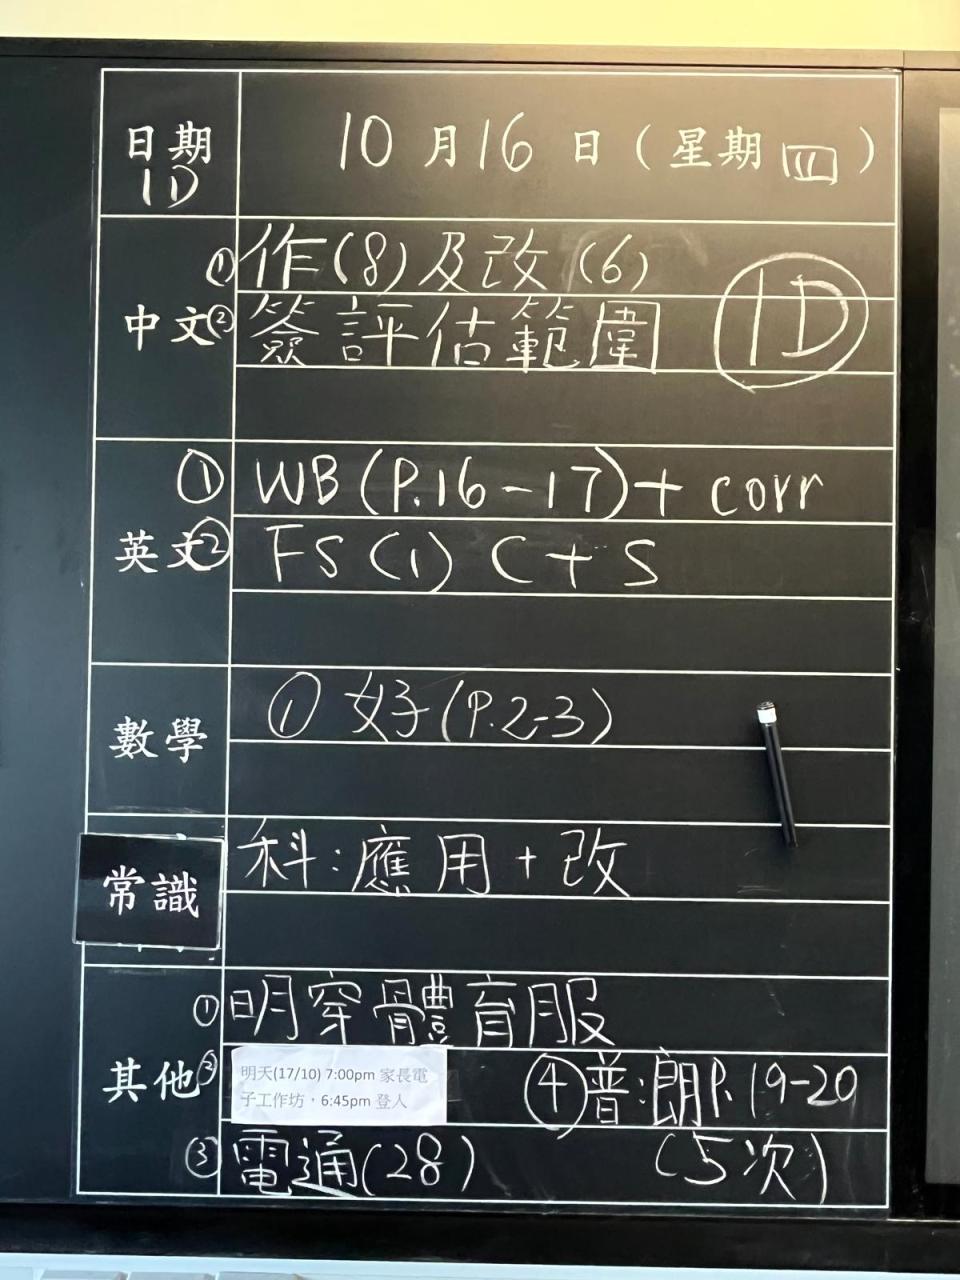 日期 1D 10月16日(星期四)
①作(8)及改(6)
中文②簽評估範圍 1D
① WB(P.16-17)+ corr
英文② FS(1) C+S
數學 ① 好(P.2-3)
常識 科:應用+改
①明穿體育服
其他② 明天(17/10) 7:00pm 家長電
子工作坊,6:45pm 登人
④普:朗P.19-20
③電通(28) (5次)